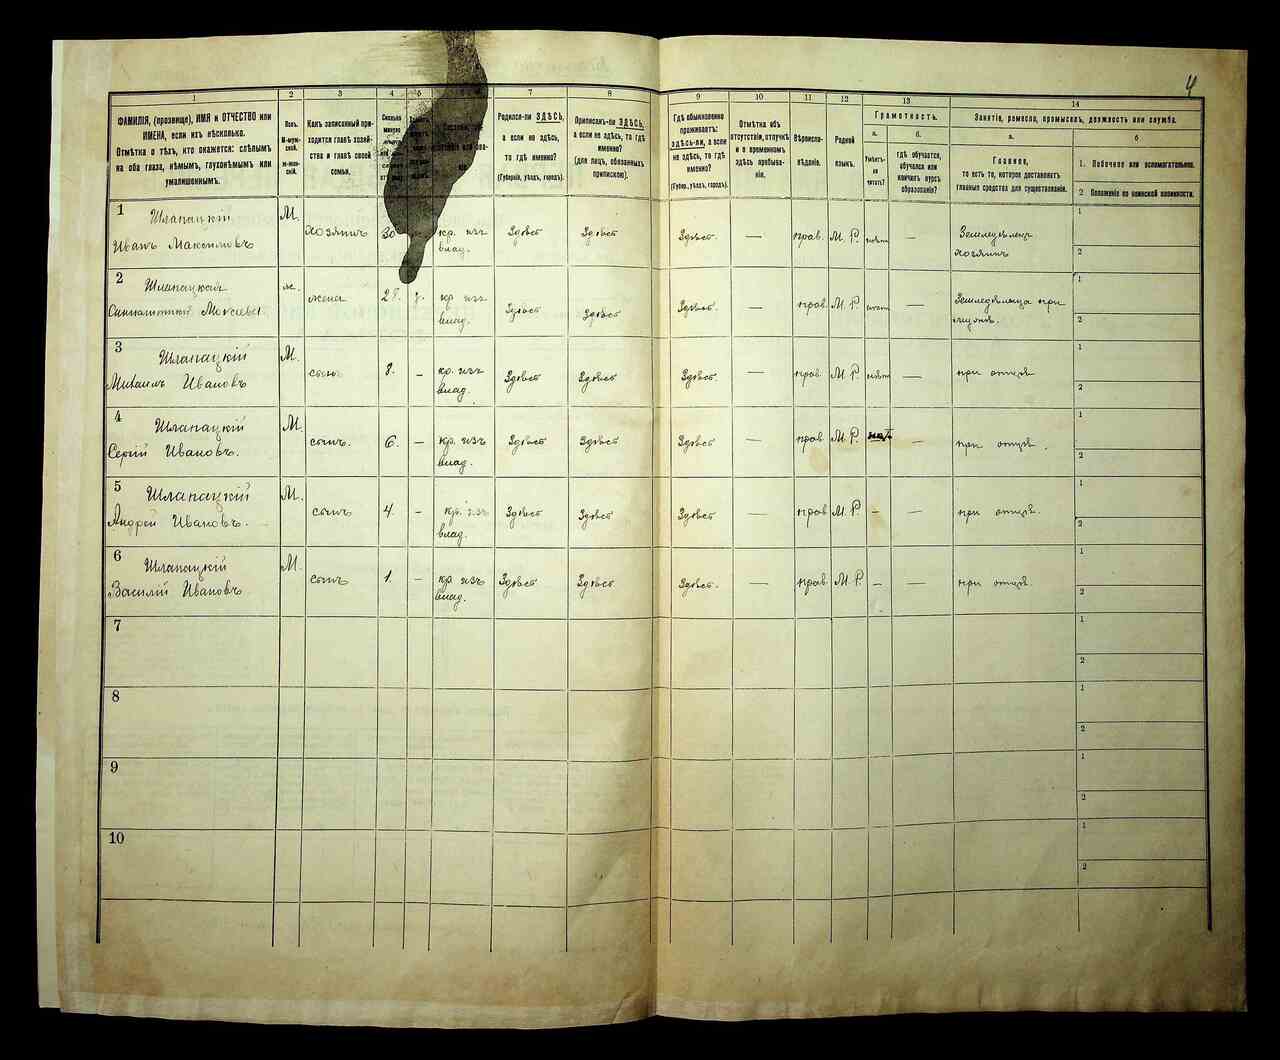 4
1 2 3 4 5 7 8 9 10 11 12 13 14
ФАМИЛІЯ, (прозвище), ИМЯ и ОТЧЕСТВО или
ИМЕНА, если ихъ нѣсколько.
Отмѣтка о тѣхъ, кто окажется: слѣпымъ
на оба глаза, нѣмымъ, глухонѣмымъ или
умалишеннымъ.
Полъ.
М-муж-
ской.
ж-жен-
скій.
Какъ записанный при-
ходится главѣ хозяй-
ства и главѣ своей
семьи.
Сколько
Родился-ли ЗДѢСЬ,
а если не здѣсь,
то гдѣ именно?
(Губернія, уѣздъ, городъ).
Приписанъ-ли ЗДѢСЬ,
а если не здѣсь, то гдѣ
именно?
(для лицъ, обязанныхъ
припискою).
Гдѣ обыкновенно
проживаетъ:
здѣсь-ли, а если
не здѣсь, то гдѣ
именно?
(Губер., уѣздъ, городъ).
Отмѣтка объ
отсутствіи, отлучкѣ
и о временномъ
здѣсь пребыва-
ніи.
Вѣроиспо-
вѣданіе.
Родной
языкъ.
Грамотность.
а. б.
Умѣетъ-
ли
читать?
гдѣ обучается,
обучался или
кончилъ курсъ
образованія?
Занятіе, ремесло, промыселъ, должность или служба.
а. б
Главное,
то есть то, которое доставляетъ
главныя средства для существованія.
1. Побочное или вспомогательное.
2 Положеніе по воинской повинности.
1 Шлапацкій М. хозяинъ 30 кр. изъ Здѣсь Здѣсь Здѣсь. — прав. М. Р. — Земледѣлецъ 1
Иванъ Максимовъ влад. хозяинъ 2
2 Шлапацкая ж. жена 28. кр изъ Здѣсь Здѣсь Здѣсь. — прав М. Р — Земледѣлица при 1
влад. 2
3 Шлапацкій М. сынъ 8. — кр. изъ Здѣсь Здѣсь Здѣсь. — прав М. Р. — при отцѣ 1
Михаилъ Ивановъ влад. 2
4 Шлапацкій М. сынъ. 6. — кр. изъ Здѣсь Здѣсь Здѣсь — прав М. Р. — при отцѣ. 1
Сергій Ивановъ. влад. 2
5 Шлапацкій М. сынъ 4. — кр. изъ Здѣсь Здѣсь Здѣсь — прав М. Р. — — при отцѣ. 1
Андрей Ивановъ. влад. 2
6 Шлапацкій М. сынъ 1. — кр изъ Здѣсь Здѣсь Здѣсь. — прав М. Р. — — при отцѣ. 1
Василій Ивановъ влад. 2
7 1
2
8 1
2
9 1
2
10 1
2